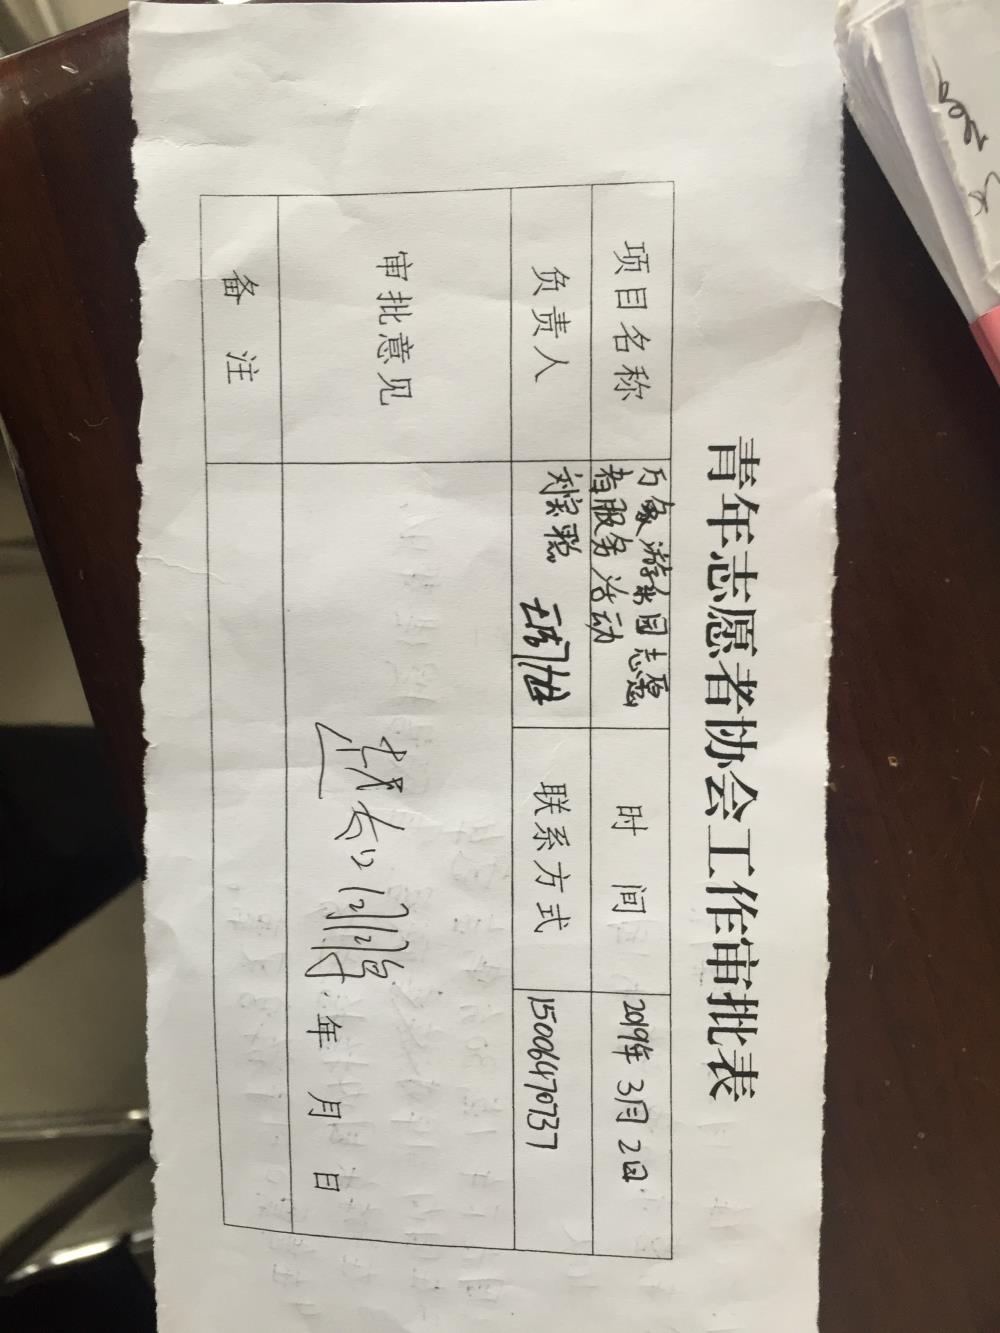 青年志愿者协会工作审批表
项目名称
万象游乐园志愿
者服务活动
时 间
2019年3月2日
负责人
刘宗聪
联系方式
15006470737
审批意见
年 月 日
备 注